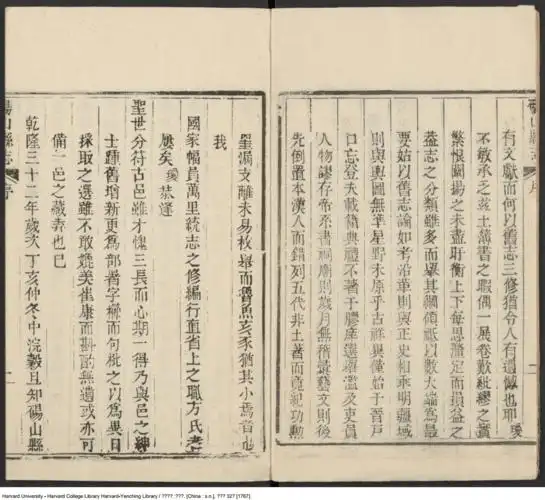 有文獻而何以舊志三修猶令人有遺憾也耶璦
不敏承乏茲土簿書之暇偶一展卷歎紕繆之實
繁恨闡揚之未盡盱衡上下每思釐定而損益之
蓋志之分類雖多而舉其綱領祗以數大端為最
要姑以舊志論如考沿革則與正史相乖明疆域
則與輿圖無準星野未原乎古祥異僅始于晉戶
口忘登夫載籍典禮不著于膠庠選舉濫及吏員
人物謬存帝系書祠廟則歲月無稽彙藝文則後
先倒置本漢人而錯列五代非土著而竟紀功勲
罣漏支離未易枚舉而魯魚亥豕猶其小焉者也
我
國家幅員萬里統志之修編行直省上之職方氏者
屢矣璦恭逢
聖世分符古邑雖才愧三長而心期一得乃與邑之紳
士踵舊增新更為部署字櫛而句枇之以為異日
採取之選雖不敢媲美崔康而斟酌無遺或亦可
備一邑之藏弆也已
乾隆三十二年歲次丁亥仲冬中浣穀旦知碭山縣
碭山縣志 序 一
Harvard University - Harvard College Library Harvard-Yenching Library / ????  :???. [China : s.n.], ??? 32? [1767].